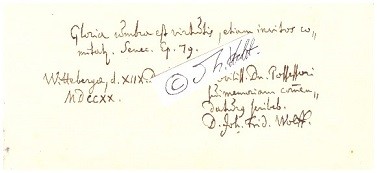 Gloria umbra est virtutis, etiam invitos co„
mitat. Senec. Ep. 79.
Witteberga, d. XIIX.
MDCCXX.
©
Dn. Possessori
memoriam com̄en„
scribeb.
D. Joh. Frid. Wolff.